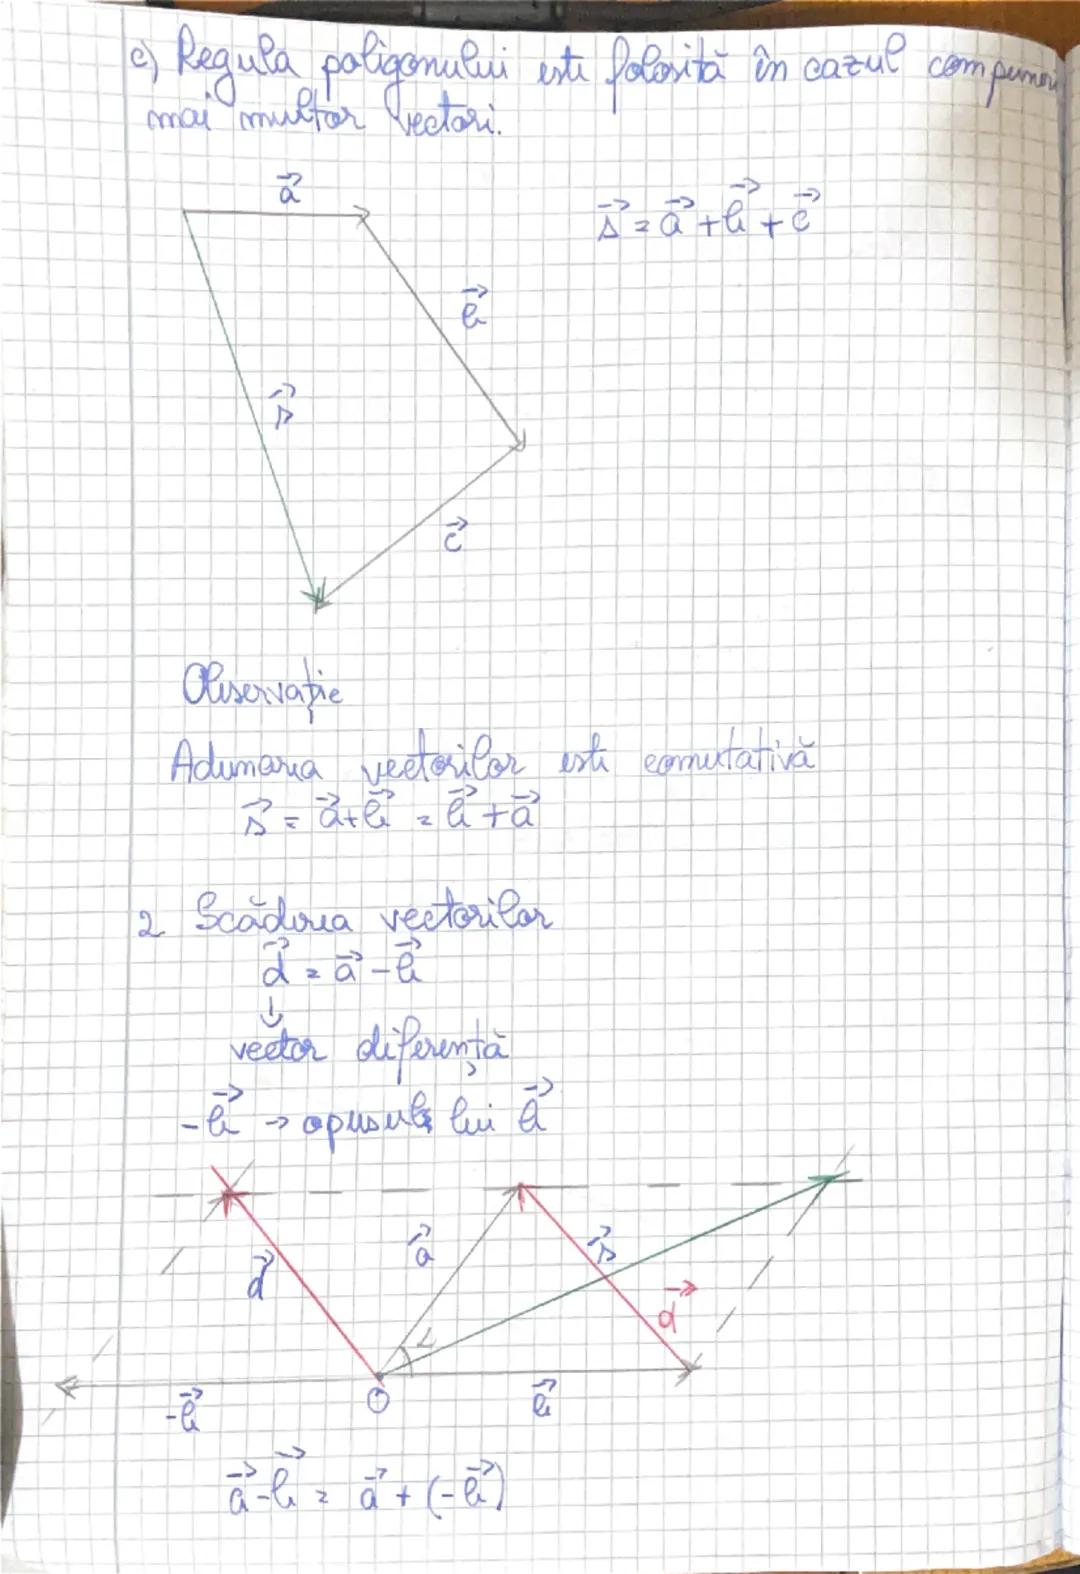 c) Regula poligonului este folosită în cazul compunerii
mai multor vectori.
a⃗
s⃗ = a⃗ + b⃗ + c⃗
b⃗
s⃗
c⃗
Observație
Adunarea vectorilor este comutativă
s⃗ = a⃗ + b⃗ = b⃗ + a⃗
2 Scăderea vectorilor
d⃗ = a⃗ - b⃗
↓
vector diferență
-b⃗ → opusul lui b⃗
d⃗ a⃗ s⃗
d⃗
α
-b⃗ O b⃗
a⃗ - b⃗ = a⃗ + (-b⃗)